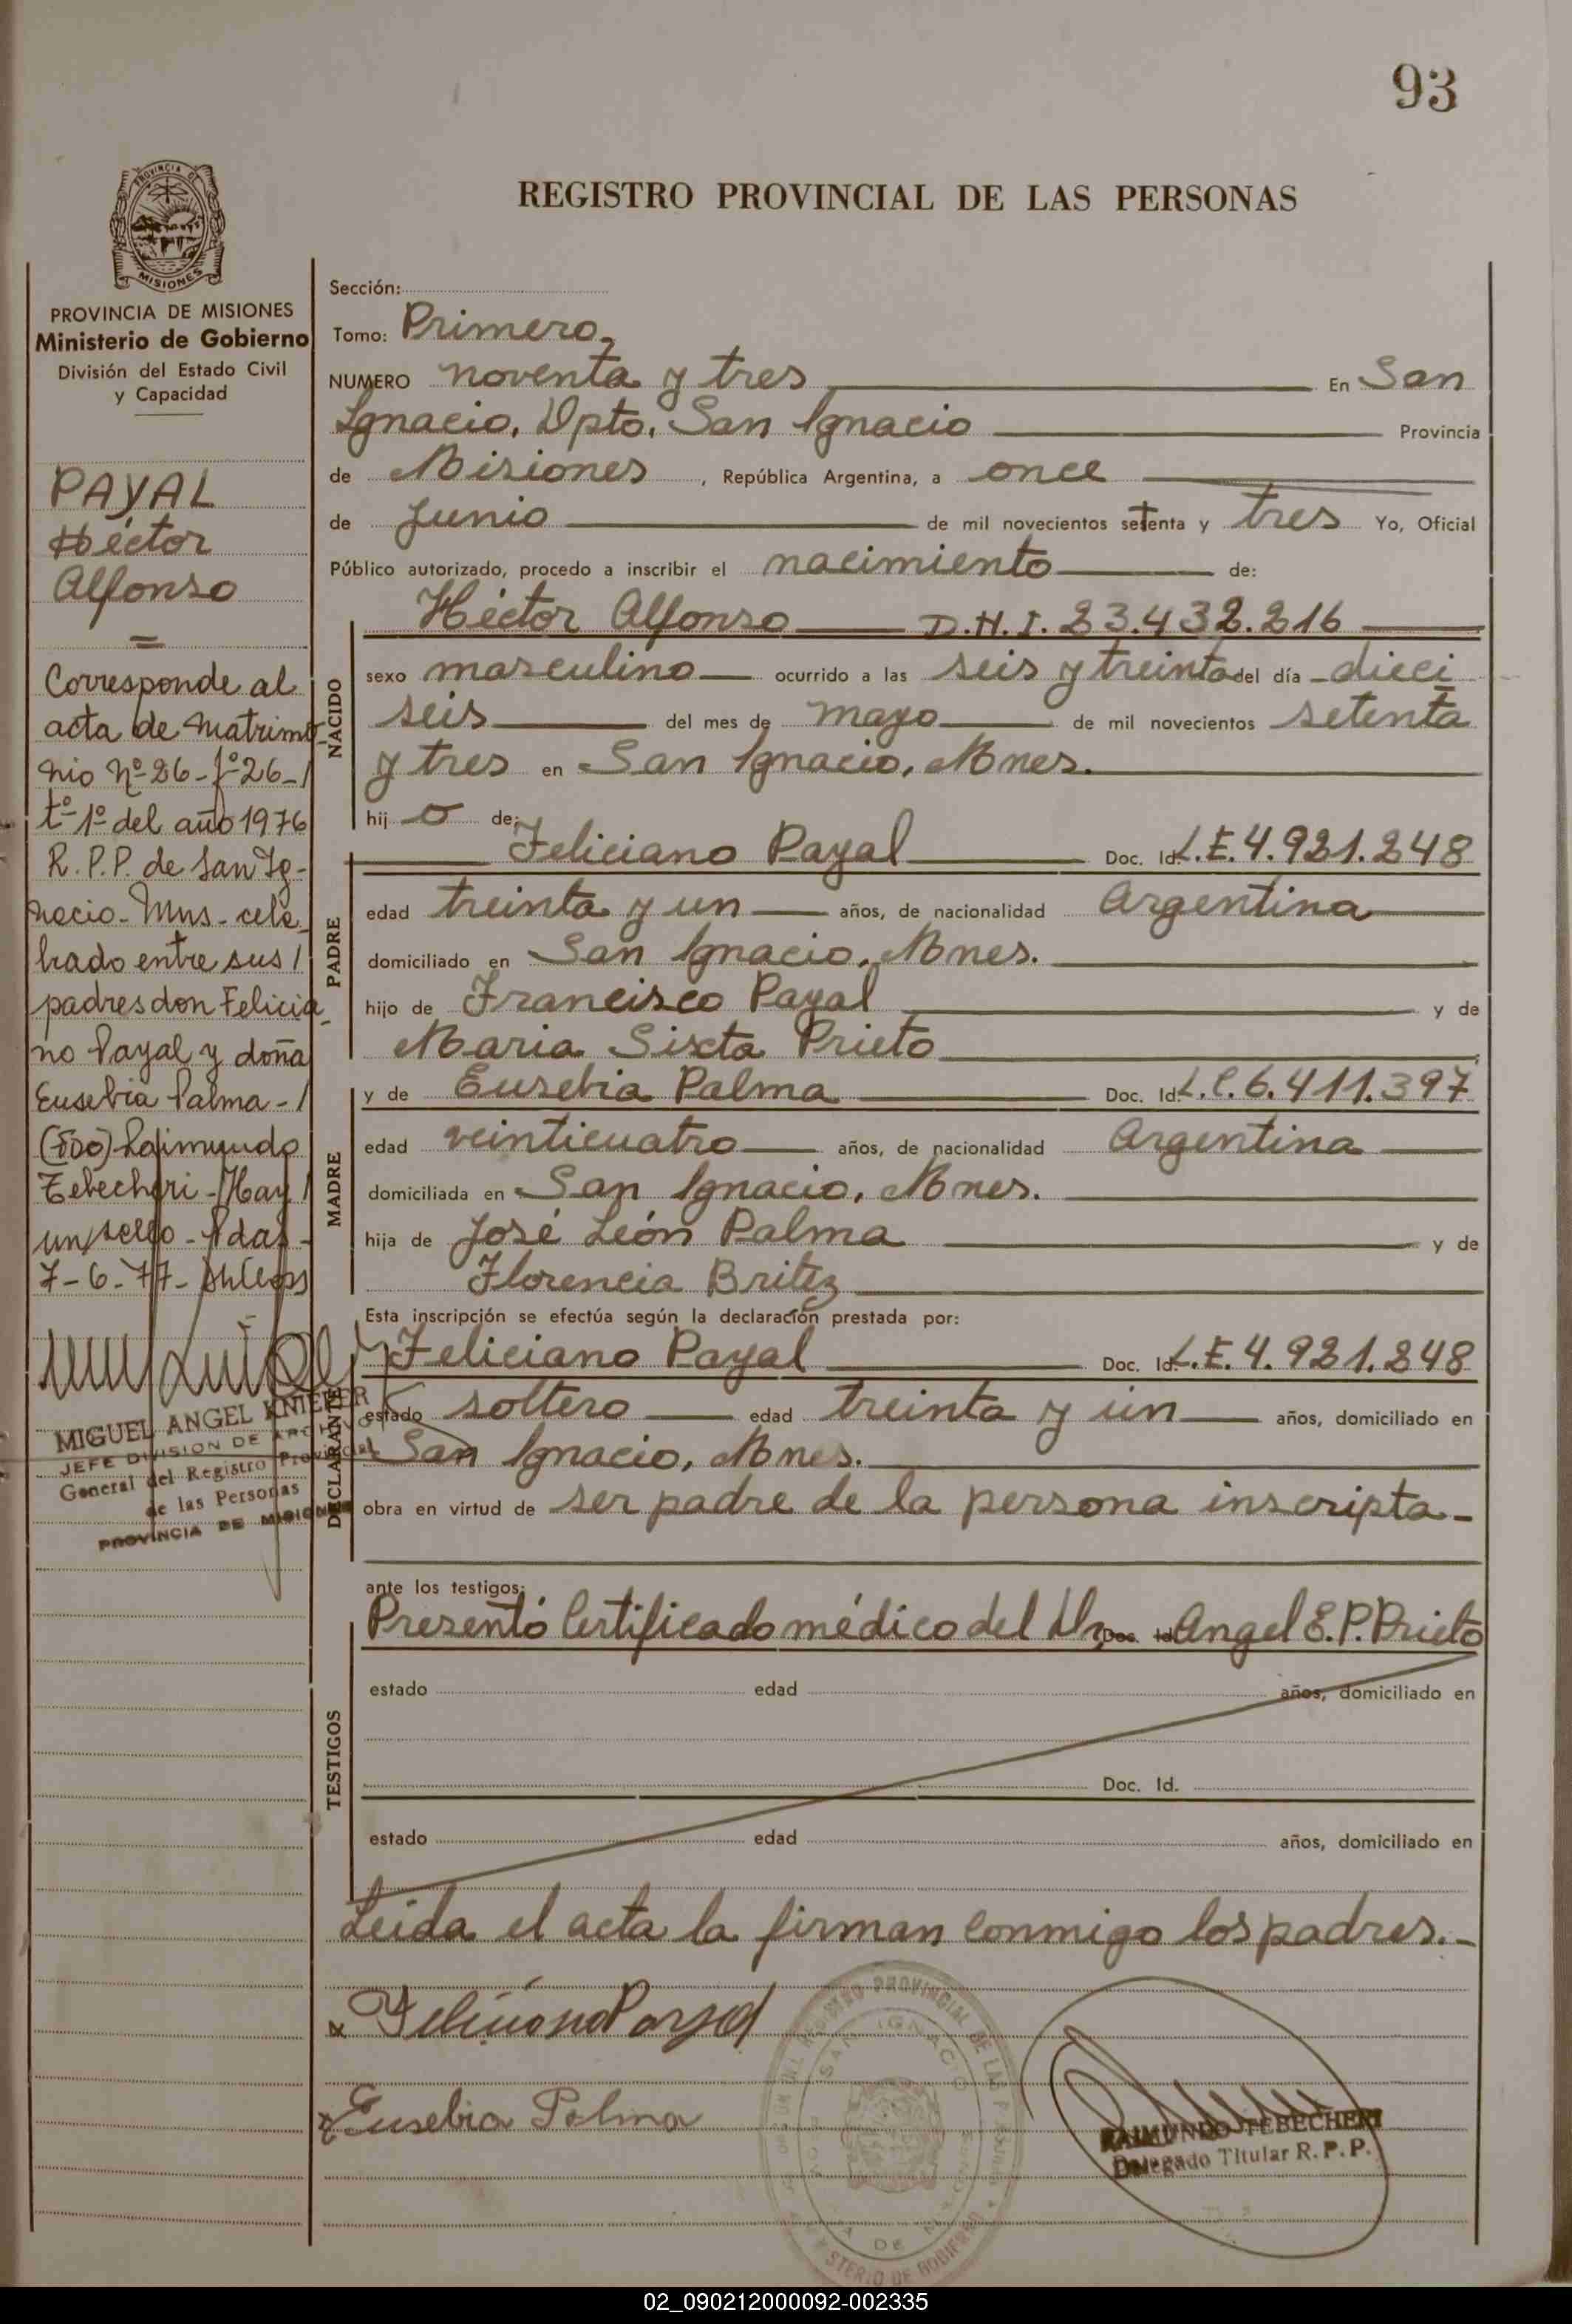 93
REGISTRO PROVINCIAL DE LAS PERSONAS
PROVINCIA DE
MISIONES
PROVINCIA DE MISIONES
Ministerio de Gobierno
División del Estado Civil
y Capacidad
PAYAL
Héctor
Alfonso
Corresponde al
acta de Matrimo-
nio Nº 26 - fº 26 - /
tº 1º del año 1976
R. P. P. de San Ig-
nacio - Mns - cele
brado entre sus /
padres don Felicia-
no Payal y doña
Eusebia Palma - /
(FDO) Raimundo
Tebecheri - Hay /
un sello - Pdas -
7-6-77-
MIGUEL ANGEL KNIEPER
JEFE DIVISION DE ARCHIVO
General del Registro Provincial
de las Personas
PROVINCIA DE MISIONES
Sección:
Tomo: Primero,
NUMERO noventa y tres En San
Ignacio, Dpto. San Ignacio Provincia
de Misiones, República Argentina, a once
de Junio de mil novecientos setenta y tres Yo, Oficial
Público autorizado, procedo a inscribir el nacimiento de:
NACIDO
Héctor Alfonso D.N.I. 23.432.216
sexo masculino ocurrido a las seis y treinta del día dieci
seis del mes de mayo de mil novecientos setenta
y tres en San Ignacio, Mnes.
hij o de:
PADRE
Feliciano Payal Doc. Id. L.E. 4.921.248
edad treinta y un años, de nacionalidad Argentina
domiciliado en San Ignacio, Mnes.
hijo de Francisco Payal y de
Maria Sixta Prieto
MADRE
y de Eusebia Palma Doc. Id. L.C. 6.411.397
edad veinticuatro años, de nacionalidad Argentina
domiciliada en San Ignacio, Mnes.
hija de José León Palma y de
Florencia Britez
Esta inscripción se efectúa según la declaración prestada por:
DECLARANTE
Feliciano Payal Doc. Id. L.E. 4.921.248
estado soltero edad treinta y un años, domiciliado en
San Ignacio, Mnes.
obra en virtud de ser padre de la persona inscripta-
ante los testigos:
TESTIGOS
Presentó Certificado médico del Dr. Doc. Id. Angel E. P. Prieto
estado edad años, domiciliado en
Doc. Id.
estado edad años, domiciliado en
Leida el acta la firman conmigo los padres.-
x Feliciano Payal
x Eusebia Palma
REGISTRO PROVINCIAL DE LAS PERSONAS
SAN IGNACIO
RAIMUNDO TEBECHERI
Delegado Titular R. P. P.
02_090212000092-002335